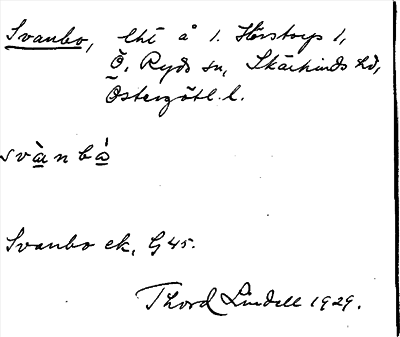 Svanbo, lht å 1. Horstorp 1,
Ö. Ryds sn, Skärkinds hd,
Östergötl. l.
svànbó
Svanbo ek. G 45.
Thord Lindell 1929.